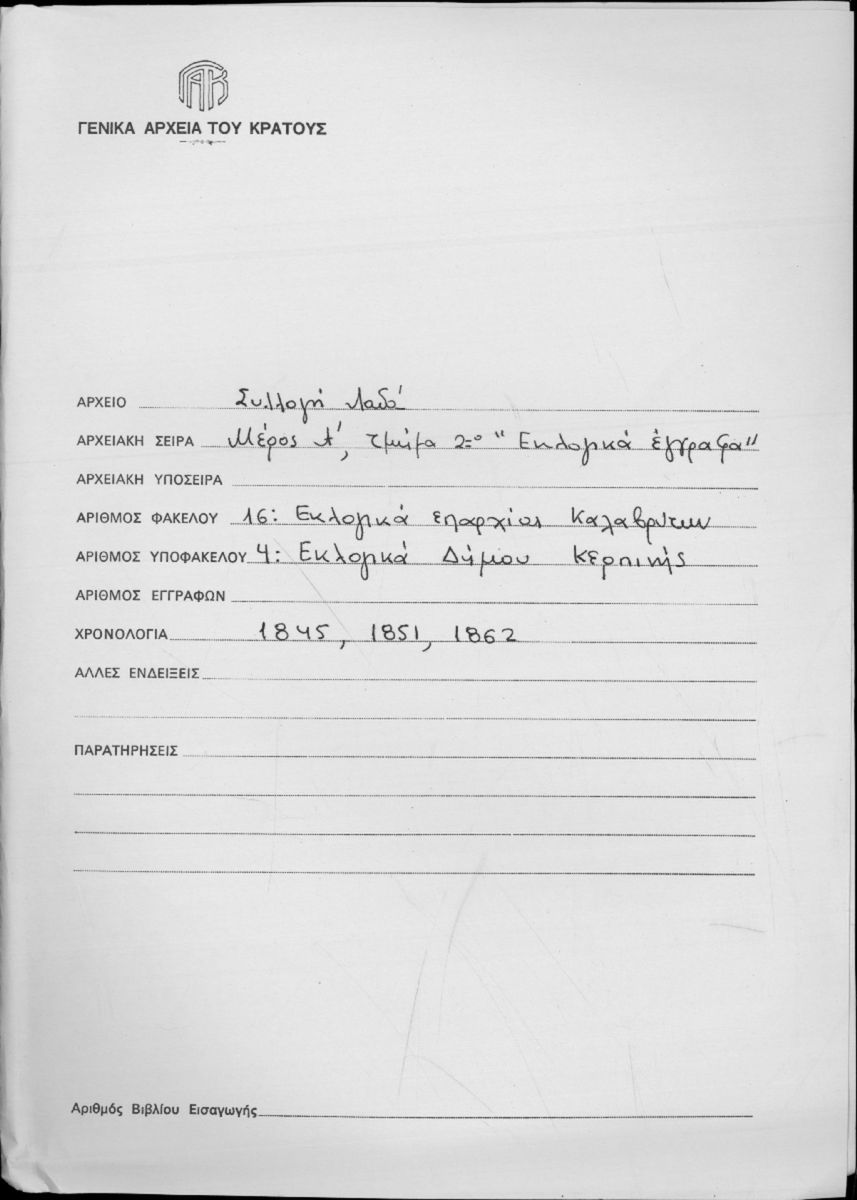 ΓΑΚ
ΓΕΝΙΚΑ ΑΡΧΕΙΑ ΤΟΥ ΚΡΑΤΟΥΣ
ΑΡΧΕΙΟ Συλλογή Λαδά
ΑΡΧΕΙΑΚΗ ΣΕΙΡΑ Μέρος Α', τμήμα 2ο "Εκλογικά έγγραφα"
ΑΡΧΕΙΑΚΗ ΥΠΟΣΕΙΡΑ
ΑΡΙΘΜΟΣ ΦΑΚΕΛΟΥ 16: Εκλογικά επαρχίας Καλαβρύτων
ΑΡΙΘΜΟΣ ΥΠΟΦΑΚΕΛΟΥ 4: Εκλογικά Δήμου Κερπινής
ΑΡΙΘΜΟΣ ΕΓΓΡΑΦΩΝ
ΧΡΟΝΟΛΟΓΙΑ 1845, 1851, 1862
ΑΛΛΕΣ ΕΝΔΕΙΞΕΙΣ
ΠΑΡΑΤΗΡΗΣΕΙΣ
Αριθμός Βιβλίου Εισαγωγής